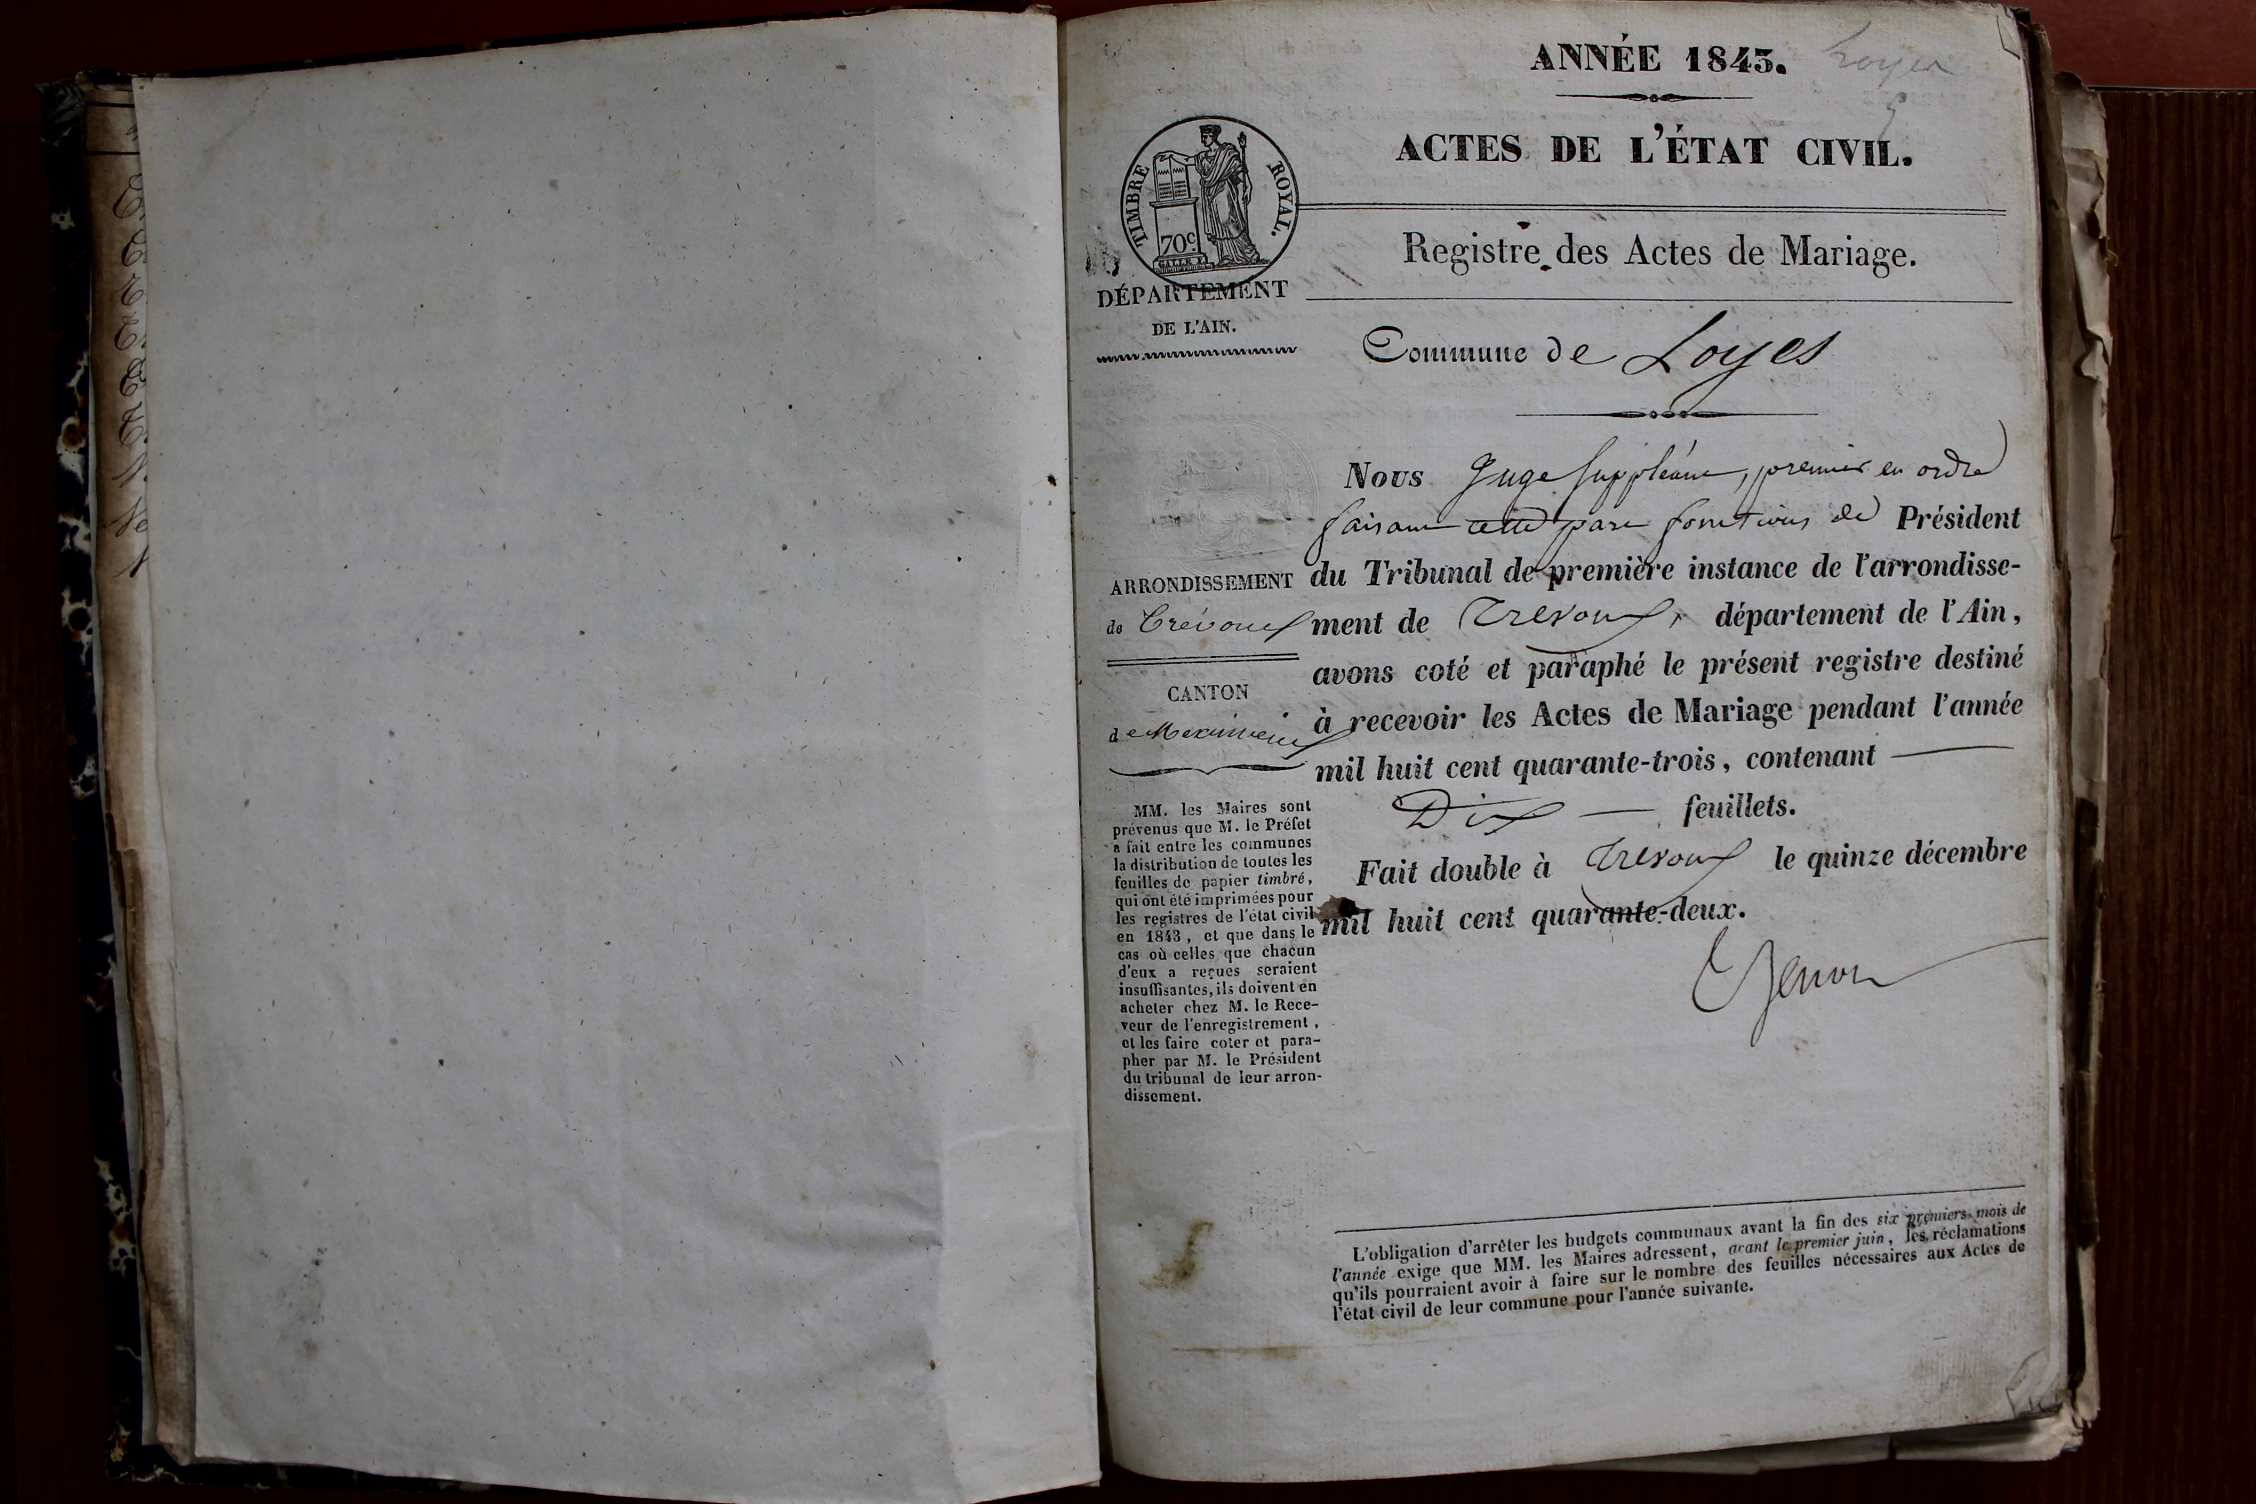 ANNÉE 1843.
Loyes
ACTES DE L'ÉTAT CIVIL.
TIMBRE ROYAL.
70c.
Registre des Actes de Mariage.
DÉPARTEMENT
DE L'AIN.
Commune de Loyes
Nous Juge Suppléant, premier en ordre
faisant cette part fonctions de Président
du Tribunal de première instance de l'arrondisse-
ment de Trevoux, département de l'Ain,
avons coté et paraphé le présent registre destiné
à recevoir les Actes de Mariage pendant l'année
mil huit cent quarante-trois, contenant
Dix feuillets.
Fait double à Trevoux le quinze décembre
mil huit cent quarante-deux.
ARRONDISSEMENT
de Trévoux
CANTON
de Meximieux
MM. les Maires sont
prévenus que M. le Préfet
a fait entre les communes
la distribution de toutes les
feuilles de papier timbré,
qui ont été imprimées pour
les registres de l'état civil
en 1843, et que dans le
cas où celles que chacun
d'eux a reçues seraient
insuffisantes, ils doivent en
acheter chez M. le Rece-
veur de l'enregistrement,
et les faire coter et para-
pher par M. le Président
du tribunal de leur arron-
dissement.
L'obligation d'arrêter les budgets communaux avant la fin des six premiers mois de
l'année exige que MM. les Maires adressent, avant le premier juin, les réclamations
qu'ils pourraient avoir à faire sur le nombre des feuilles nécessaires aux Actes de
l'état civil de leur commune pour l'année suivante.